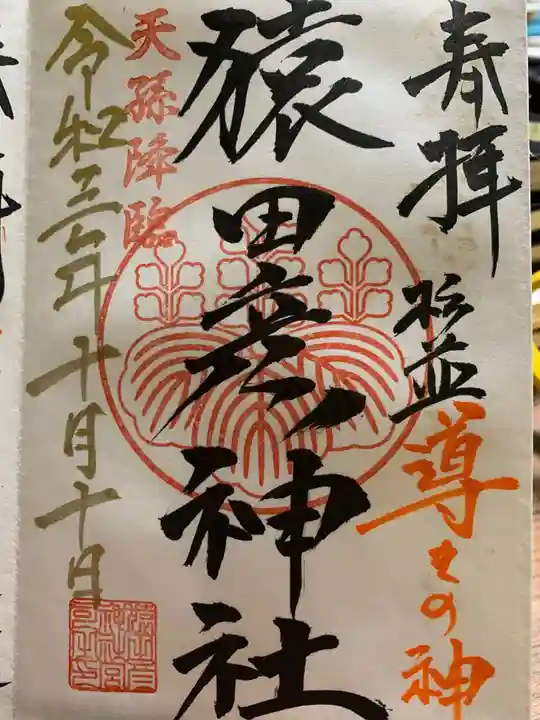 奉拝
松並
導きの神
猿田彦神社
天孫降臨
令和三年十月十日